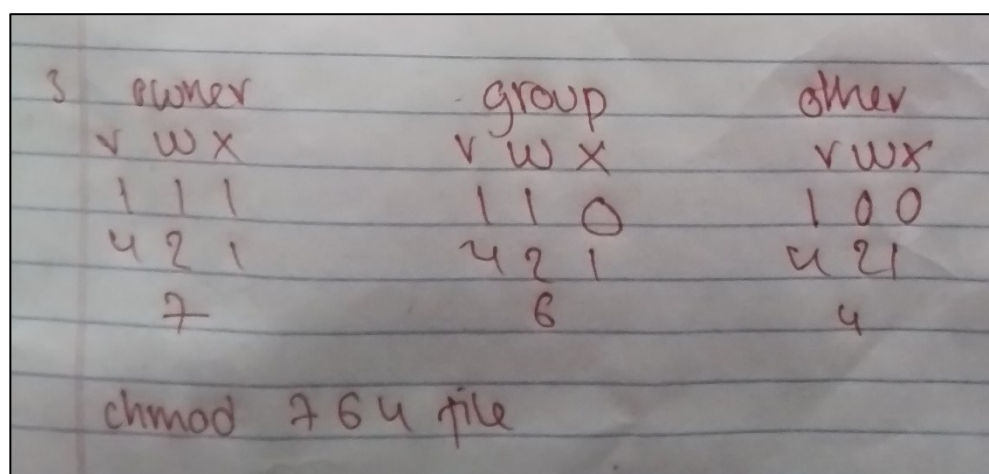 3 owner group other
r w x r w x r w x
1 1 1 1 1 0 1 0 0
4 2 1 4 2 1 4 2 1
7 6 4
chmod 764 file